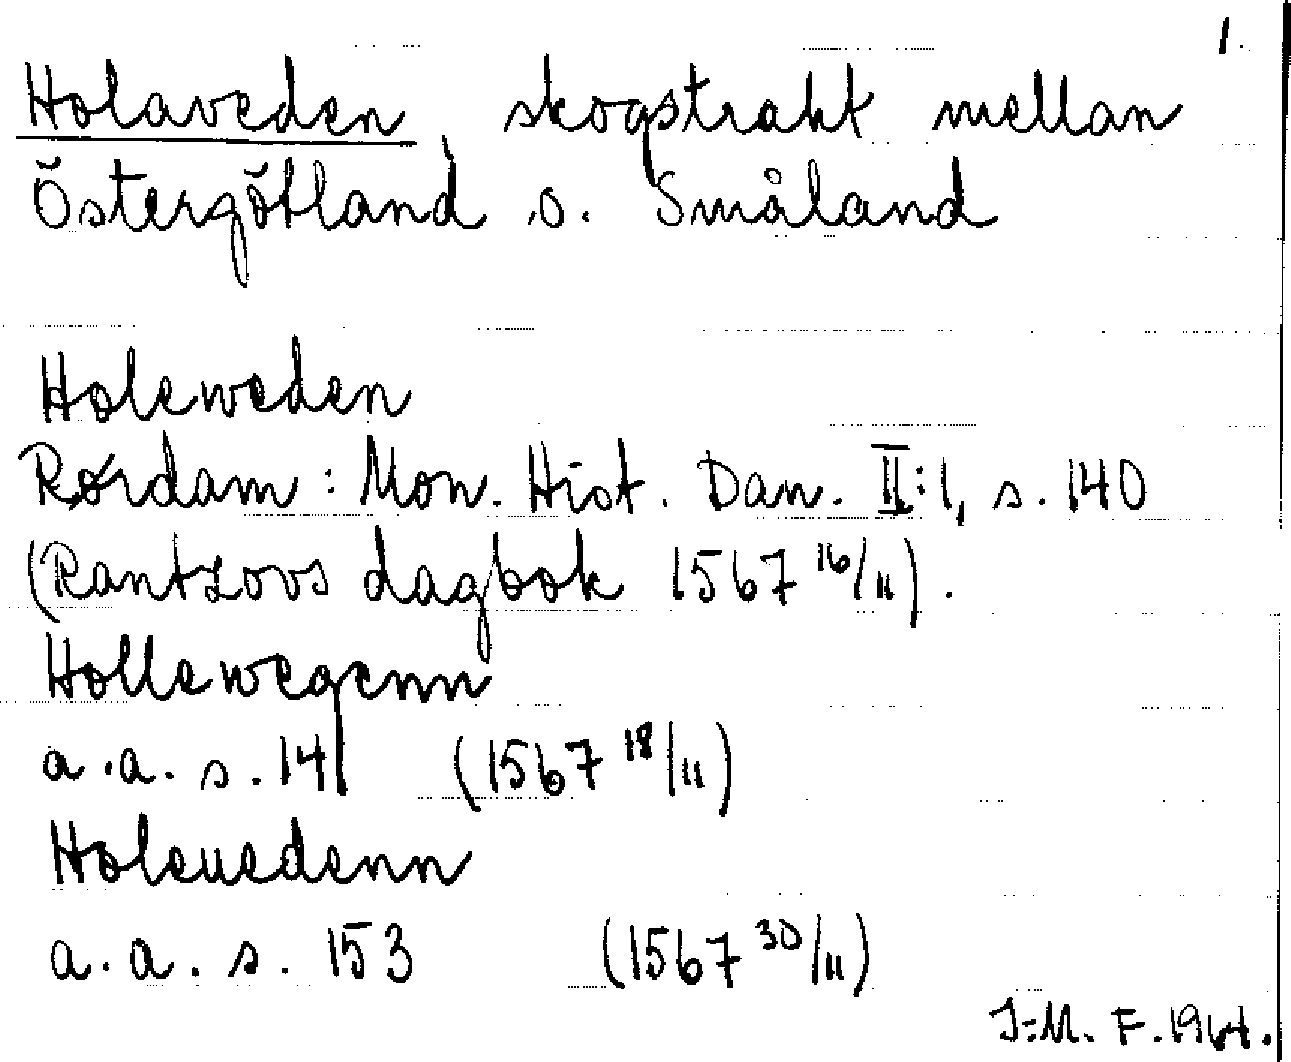 1.
Holaveden, skogstrakt mellan
Östergötland o. Småland
Holeweden
Rørdam: Mon. Hist. Dan. II:1, s. 140
(Rantzovs dagbok 1567 16/11).
Hollewegenn
a.a. s. 141 (1567 18/11)
Holeuedenn
a.a. s. 153 (1567 30/11)
I-M. F. 1964.